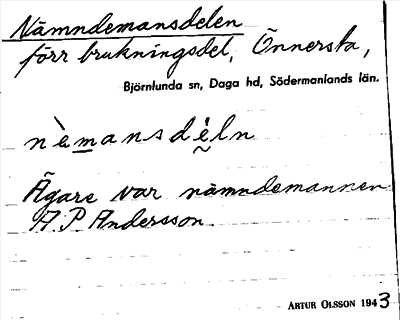 Nämndemansdelen
förr brukningsdel, Önnersta,
Björnlunda sn, Daga hd, Södermanlands län.
nèmansdéln
Ägare var nämndemannen
A.P. Andersson.
ARTUR OLSSON 1943